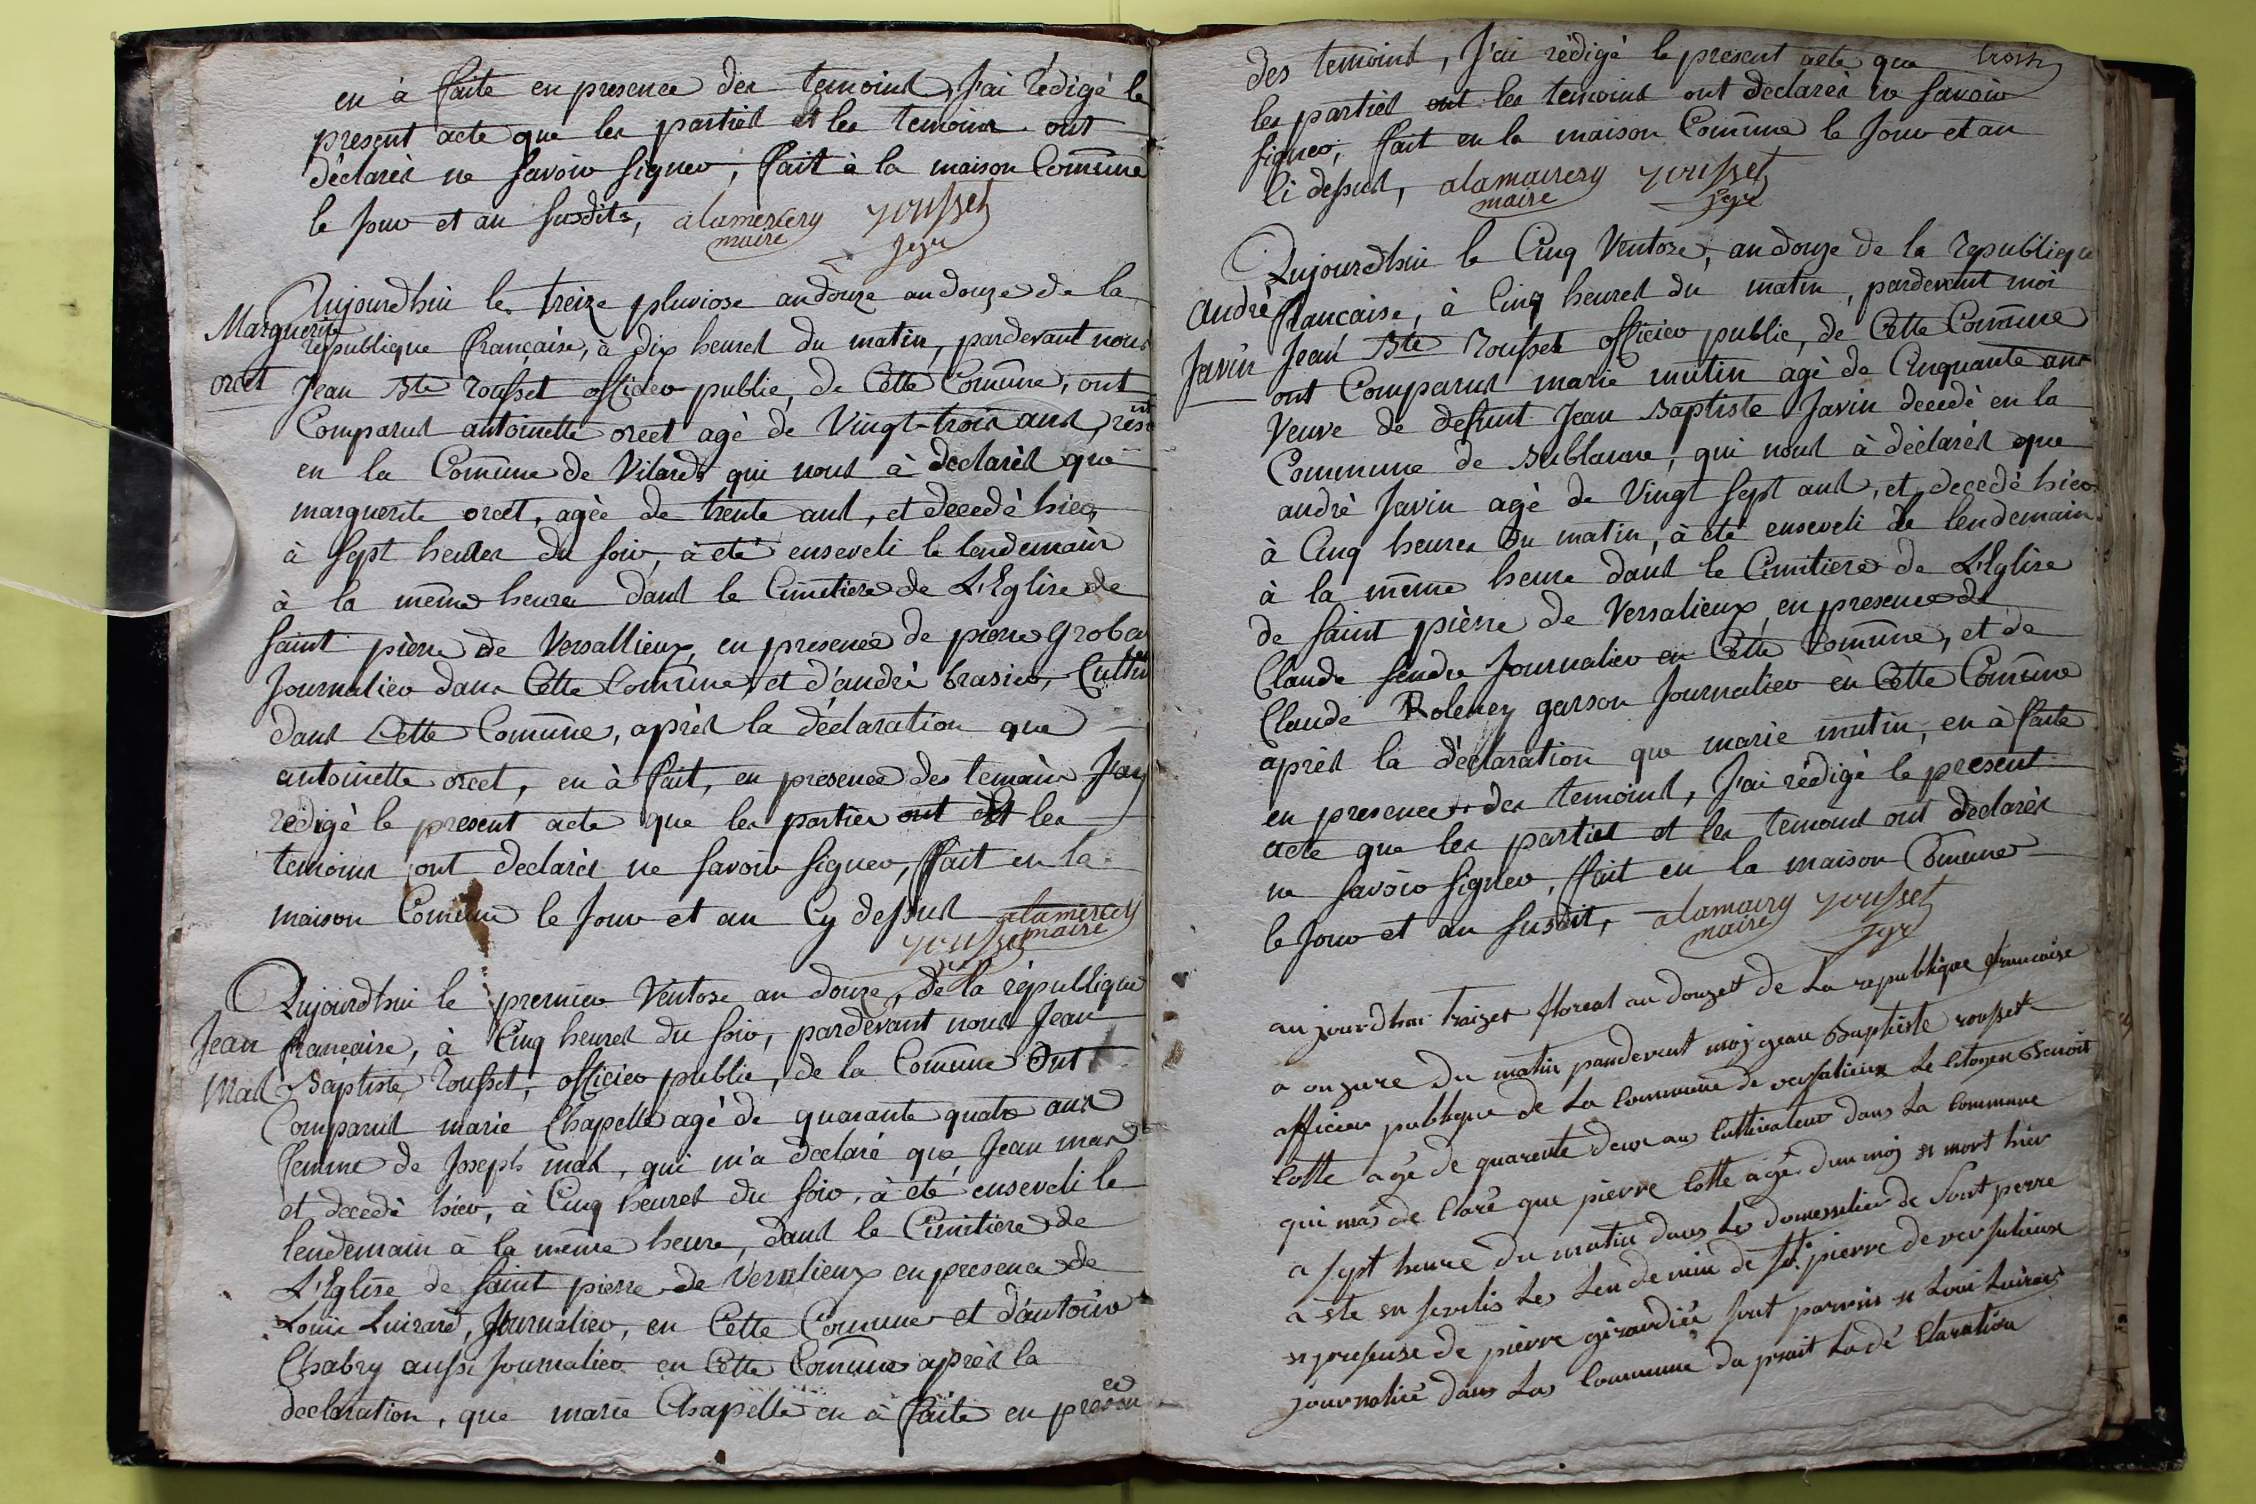 en à faite en presence des temoins, J'ai rédigé le
present acte que les partiés et les temoins ont
déclarés ne savoir signer, fait à la maison Comūne
le Jour et an susdits, alamercery rousset
maire
Aujourdhui le treize pluviose an douze an douze de la
Marguerite
republique française, à dix heures du matin, pardevant nous
orcet
Jean Bte rousset officier public, de Cette Comūne, ont
Comparus antoinette orcet agé de Vingt-trois ans,
en la Comūne de Vilards qui nous à declarés que
marguerite orcet, agée de trente ans, et decedé hier
à sept heures du soir, à eté enseveli le lendemain
à la même heure dans le Cimetiere de L'Eglise de
saint pierre de Versallieux, en presence de pierre
Journalier dans Cette Comūne et d'andré brasier,
dans Cette Comūne, aprés la déclaration que
antoinette orcet, en à fait, en presence des temoin J'ay
redigé le present acte que les parties ont et les
temoins ont declarés ne savoir signer, fait en la
maison Comūne le Jour et an Cy dessus alamercery
rousset maire
Aujourdhui le premier Ventose an douze, de la république
Jean
francaise, à Cinq heures du soir, pardevant nous Jean
Mas
Baptiste rousset, officier public, de la Comūne Ont
Comparus marie Chapelle agé de quarante quatre ans
femme de Joseph mas, qui m'a declaré que Jean mas
et decedé hier, à Cinq heures du soir, à eté enseveli le
lendemain à la même heure, dans le Cimitiere de
L'Eglise de saint pierre de Versalieux en presence de
Louis Luizard, Journalier, en Cette Comūne et d'antoine
Chabry aussi Journalier en Cette Comūne aprés la
declaration, que marie Chapelle en à faite en presence
des temoins, J'ai rédigé le present acte que trois
les partiés ont les temoins ont declarés ne savoir
signer, fait en la maison Comūne le Jour et an
Ci dessus, alamercery rousset
maire
Aujourdhui le Cinq Ventose, an douze de la republique
andré
francaise, à Cinq heures du matin, pardevant moi
Javin
Jean Bte rousset officier public, de Cette Comūne
ont Comparus marie mutin agé de Cinquante ans
Veuve de defunt Jean Baptiste Javin decedé en la
Commune de Sublaune, qui nous à déclarés que
andré Javin agé de Vingt sept ans, et decedé hier
à Cinq heures Du matin, à eté enseveli le lendemain
à la même heure dans le Cimitiere de L'Eglise
de saint pierre de Versalieux, en presence de
Claude fendre Journalier en Cette Comūne, et de
Claude garson Journalier en Cette Comūne
aprés la déclaration que marie mutin, en à faite
en presence des temoins, J'ai rédigé le present
acte que les partiés et les temoins ont declarés
ne savoir signer, fait en la maison Comune
le Jour et an susdit, alamercery rousset
maire
aujourdhui traizet floreal an douzet de La republique francaise
a onzure du matin pandevent moij jean Baptiste rousset
afficier publique de La Commune de versalieux Le Citoyen Benoit
Cotte agé de quarente deux ans Cultivateur dans La Commune
qui mas de Claré que pierre Cotte agé dun moij et mort hier
a sept heure du matin dans Les domesilier de Sont perre
a ete en sevelis Les Lendemin de St pierre de versalieux
et presense de pierre girardiée sont parrein et Loui
journalié dans Las Commune da prait La dé Claration